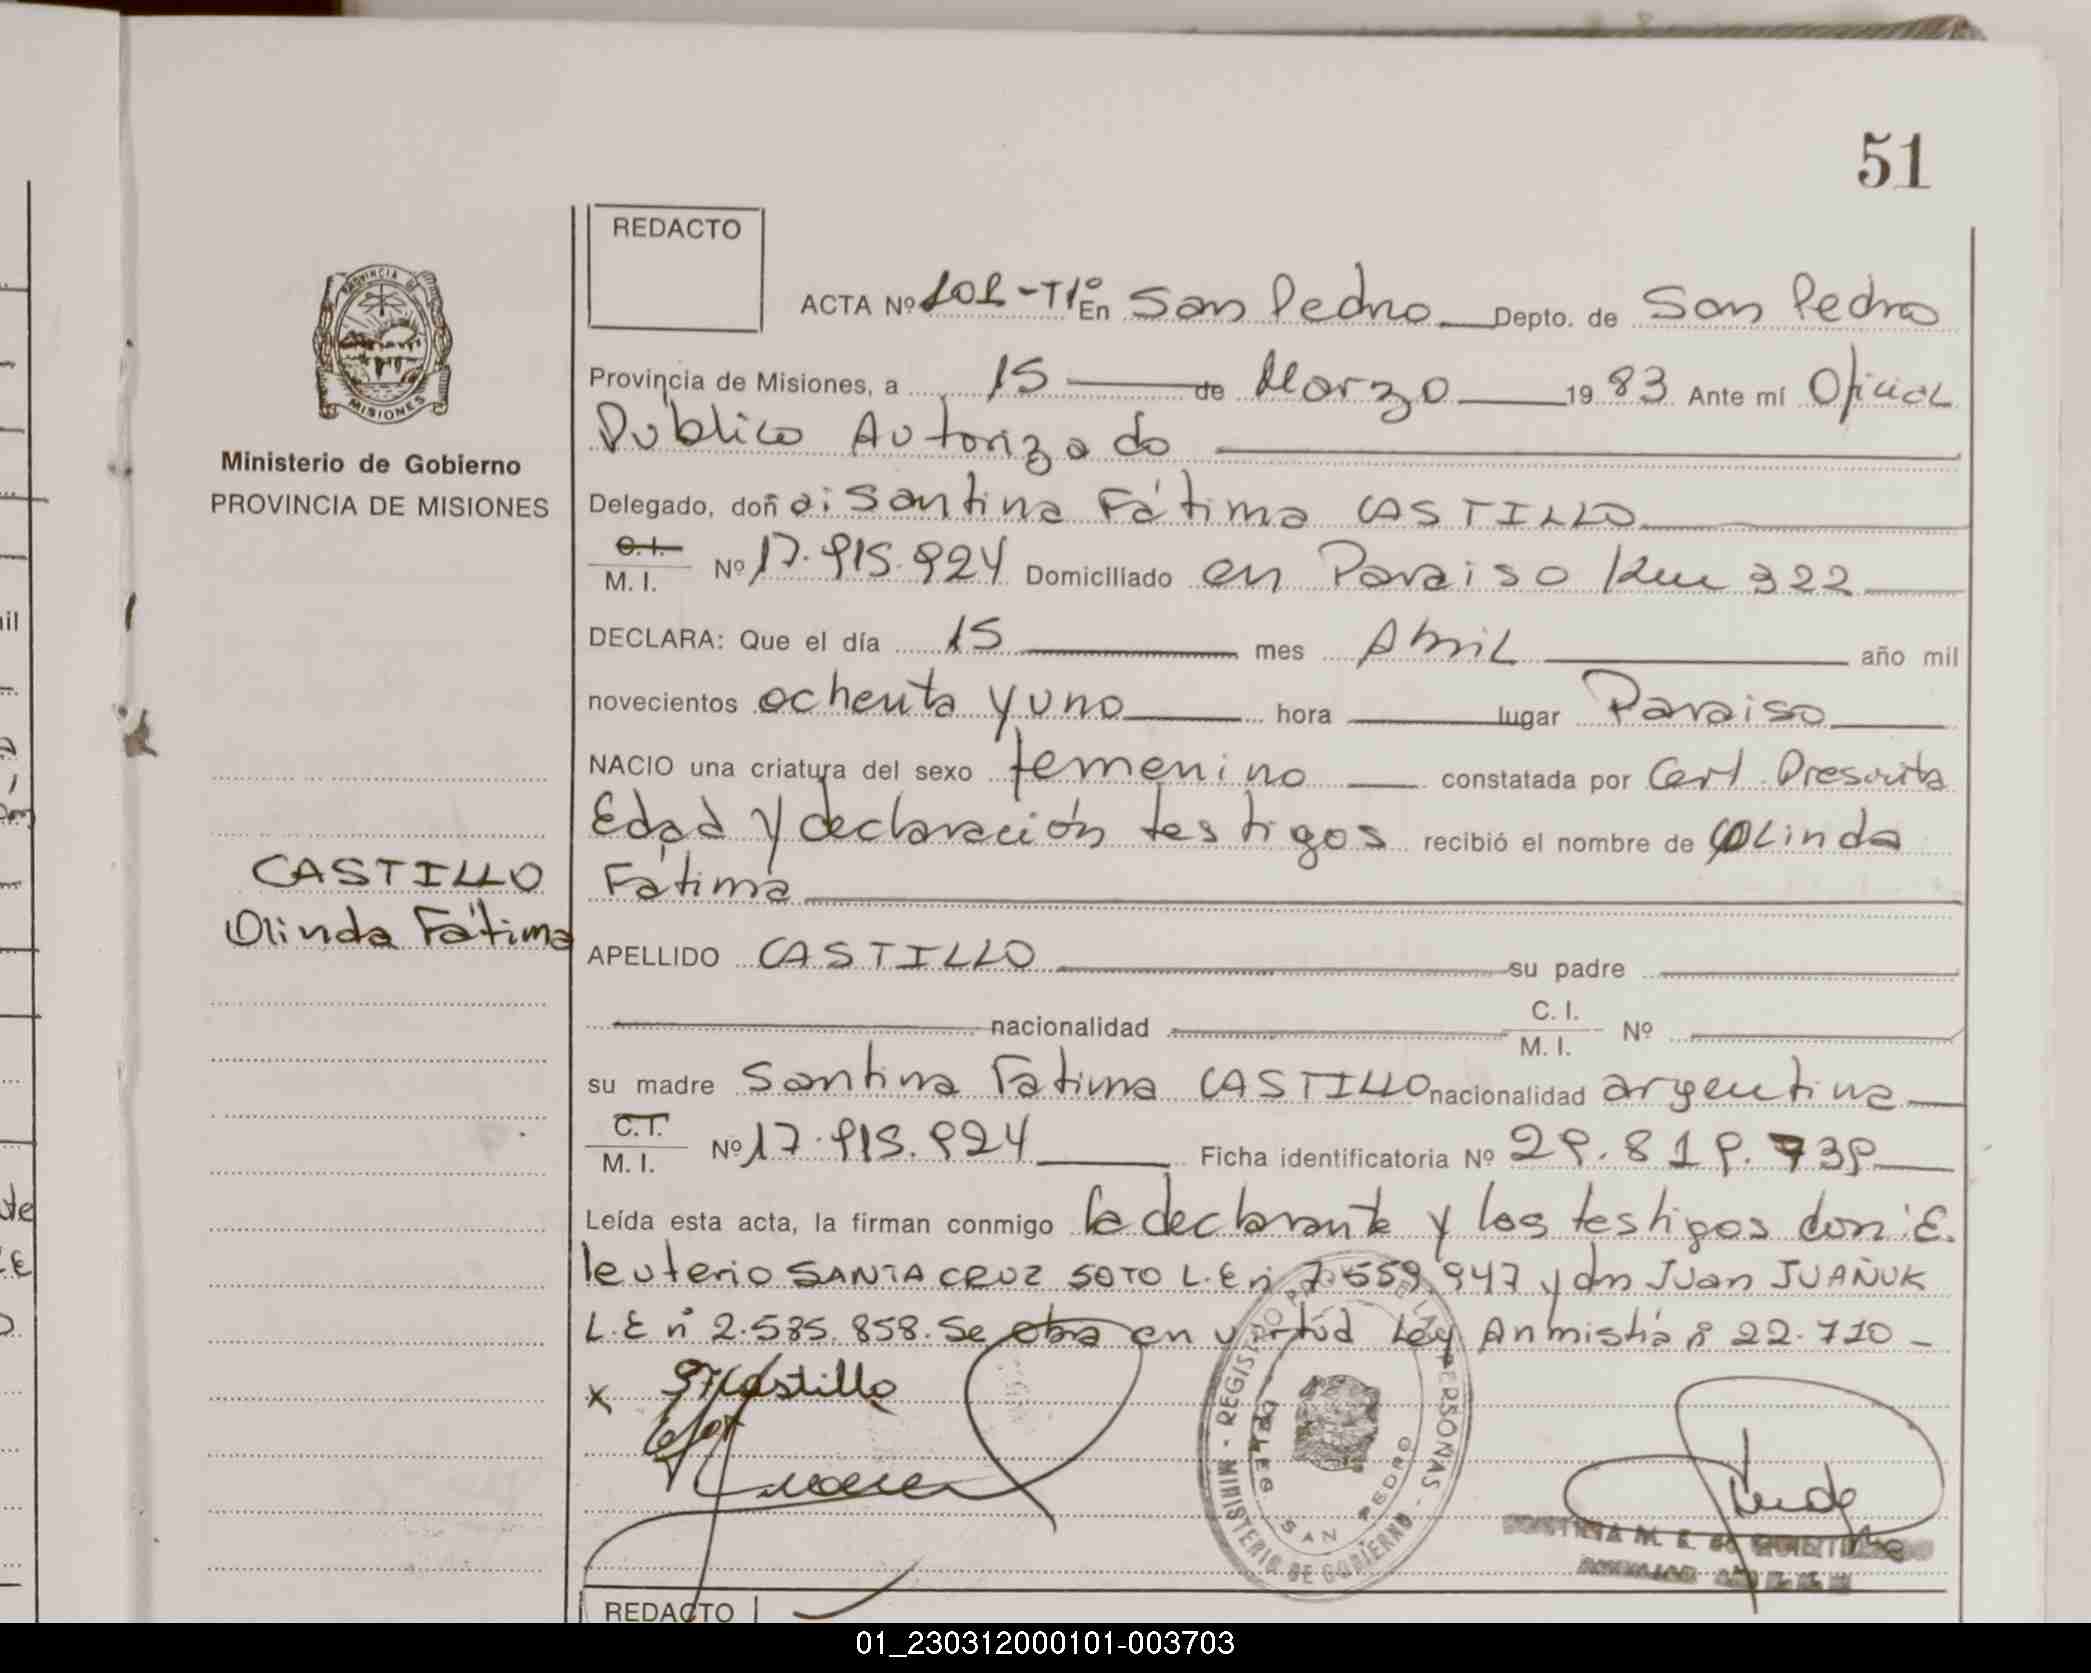 51
REDACTO
ACTA Nº 101-T1º En San Pedro Depto. de San Pedro
Provincia de Misiones, a 15 de Marzo 1983 Ante mí Oficial
Publico Autorizado
Delegado, doña: Santina Fátima CASTILLO
C.I.
M. I. Nº 17.915.924 Domiciliado en Paraiso Km 322
DECLARA: Que el día 15 mes Abril año mil
novecientos ochenta y uno hora lugar Paraiso
NACIO una criatura del sexo femenino constatada por Cert Presunta
Edad y declaración testigos recibió el nombre de Olinda
Fátima
APELLIDO CASTILLO su padre
nacionalidad C. I.
M. I. Nº
su madre Santina Fatima CASTILLO nacionalidad argentina
C.I.
M. I. Nº 17.915.924 Ficha identificatoria Nº 29.819.739
Leída esta acta, la firman conmigo la declarante y los testigos don: E.
leuterio SANTA CRUZ SOTO L.E nº 7.559.947 y don Juan JUAÑUK
L.E nº 2.585.858. Se obra en virtud Ley Anmistía nº 22.710 -
x SFCastillo
PROVINCIA DE
MISIONES
Ministerio de Gobierno
PROVINCIA DE MISIONES
CASTILLO
Olinda Fátima
MINISTERIO DE GOBIERNO - REGISTRO DE LAS PERSONAS
SAN PEDRO
REDACTO
01_230312000101-003703